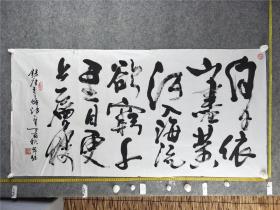 白日依
山盡黄
河入海流
欲窮千
里目更
上一層樓